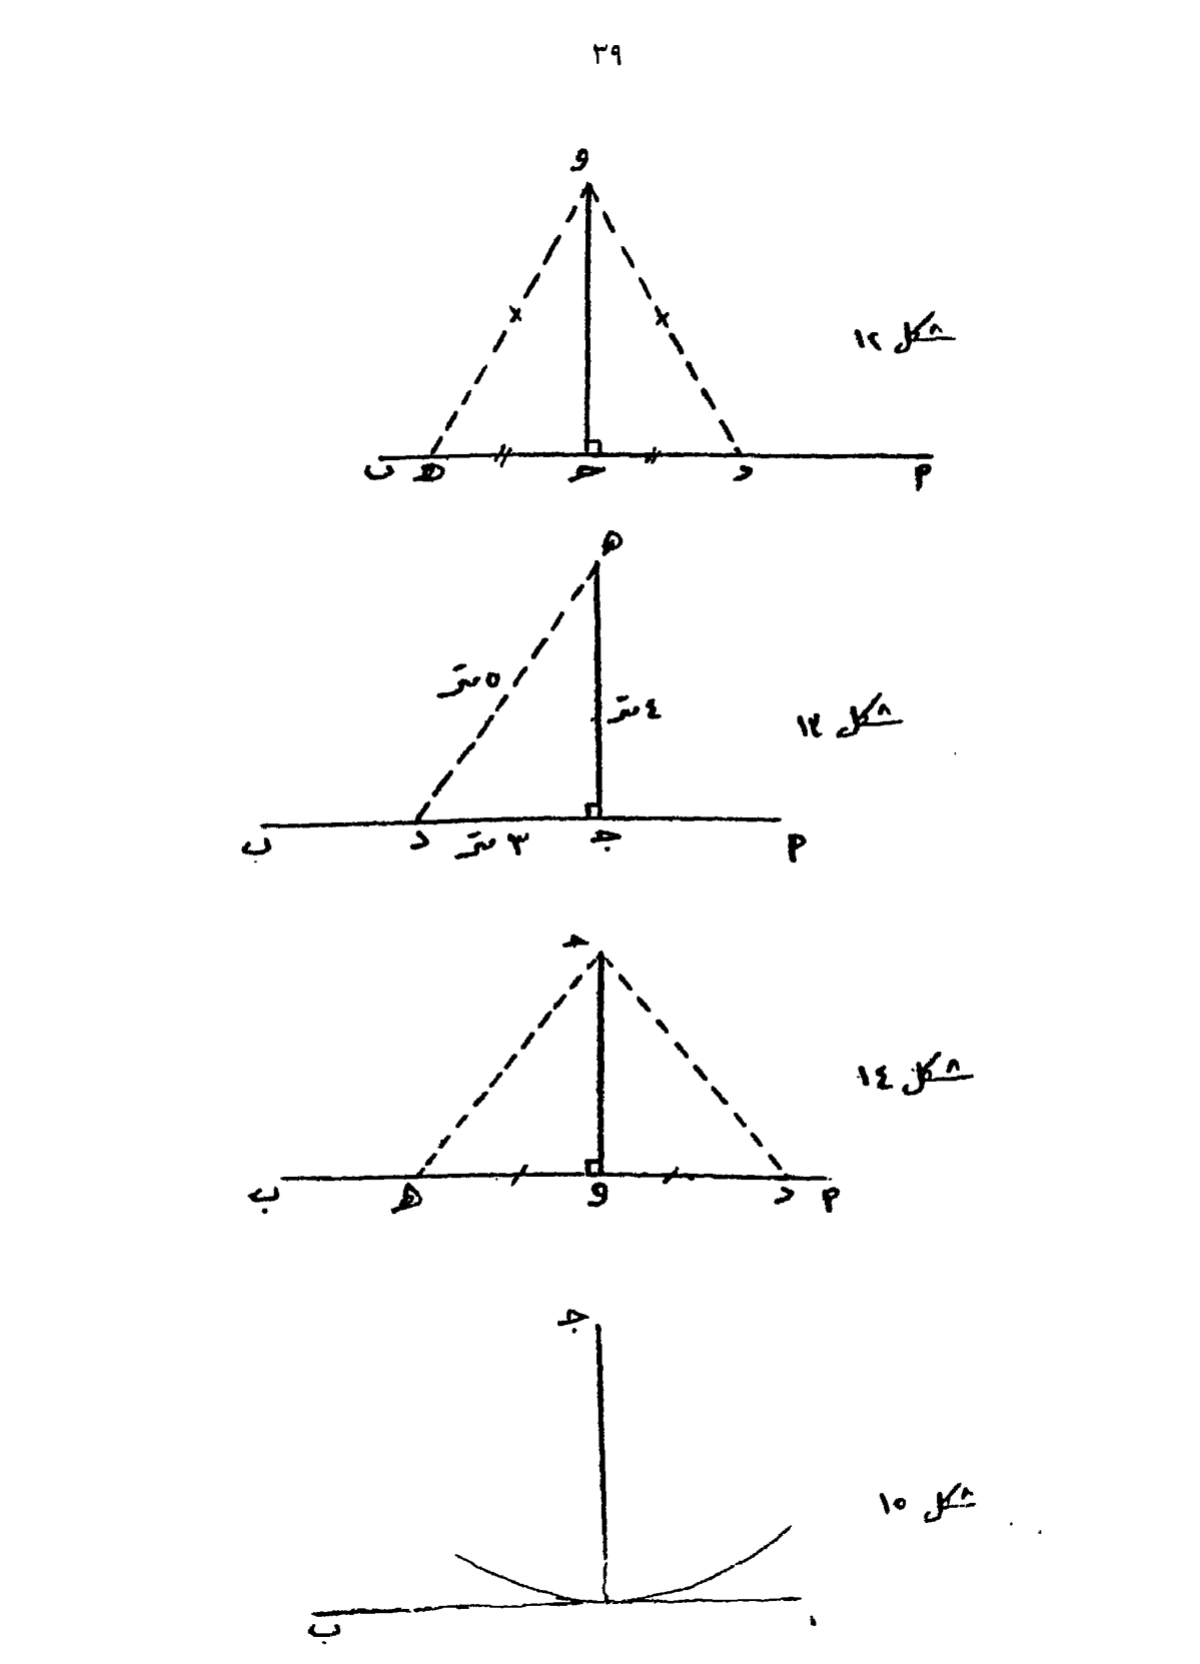 ٣٩
و
شكل ١٢
ب هـ جـ د م
هـ
٥ متر
٤ متر
شكل ١٣
ب د ٣ متر جـ م
جـ
شكل ١٤
ب هـ و د م
جـ
شكل ١٥
ب ا